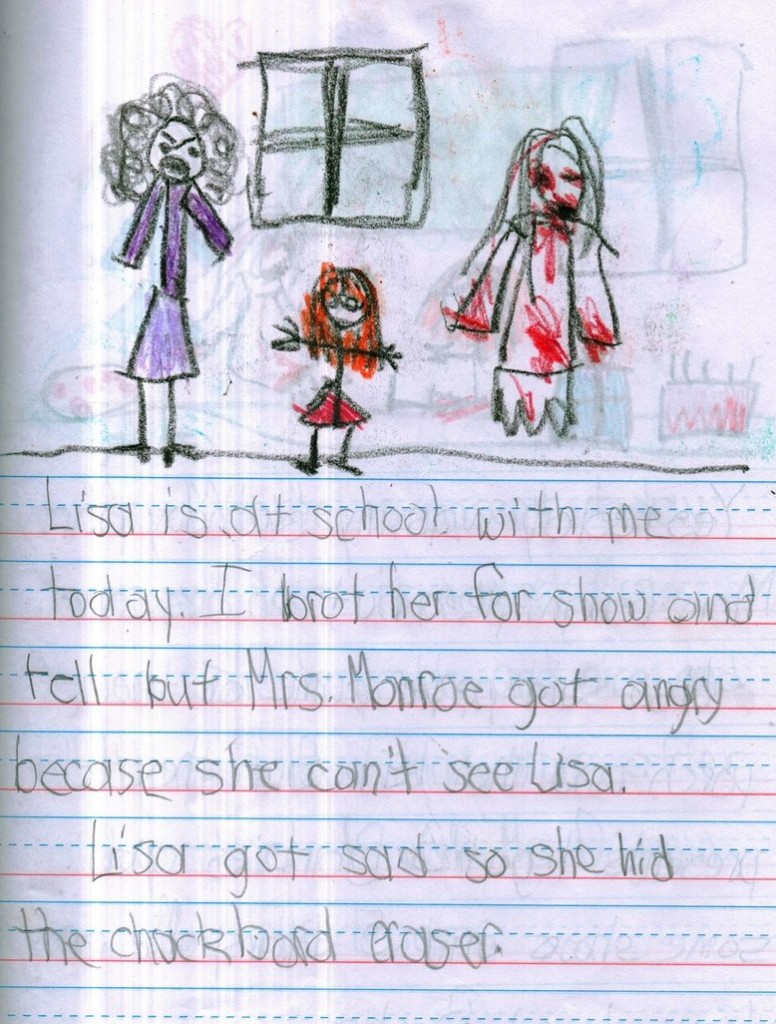 Lisa is at school with me
today. I brot her for show and
tell but Mrs. Monroe got angry
becase she can't see Lisa.
Lisa got sad so she hid
the chackbord eraser.